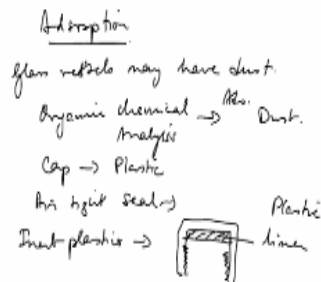 Adsorption
Glass vessels may have dust.
Organic chemical Analysis → Abs. Dust.
Cap → Plastic
Air tight seal →
Inert plastics →
Plastic liner